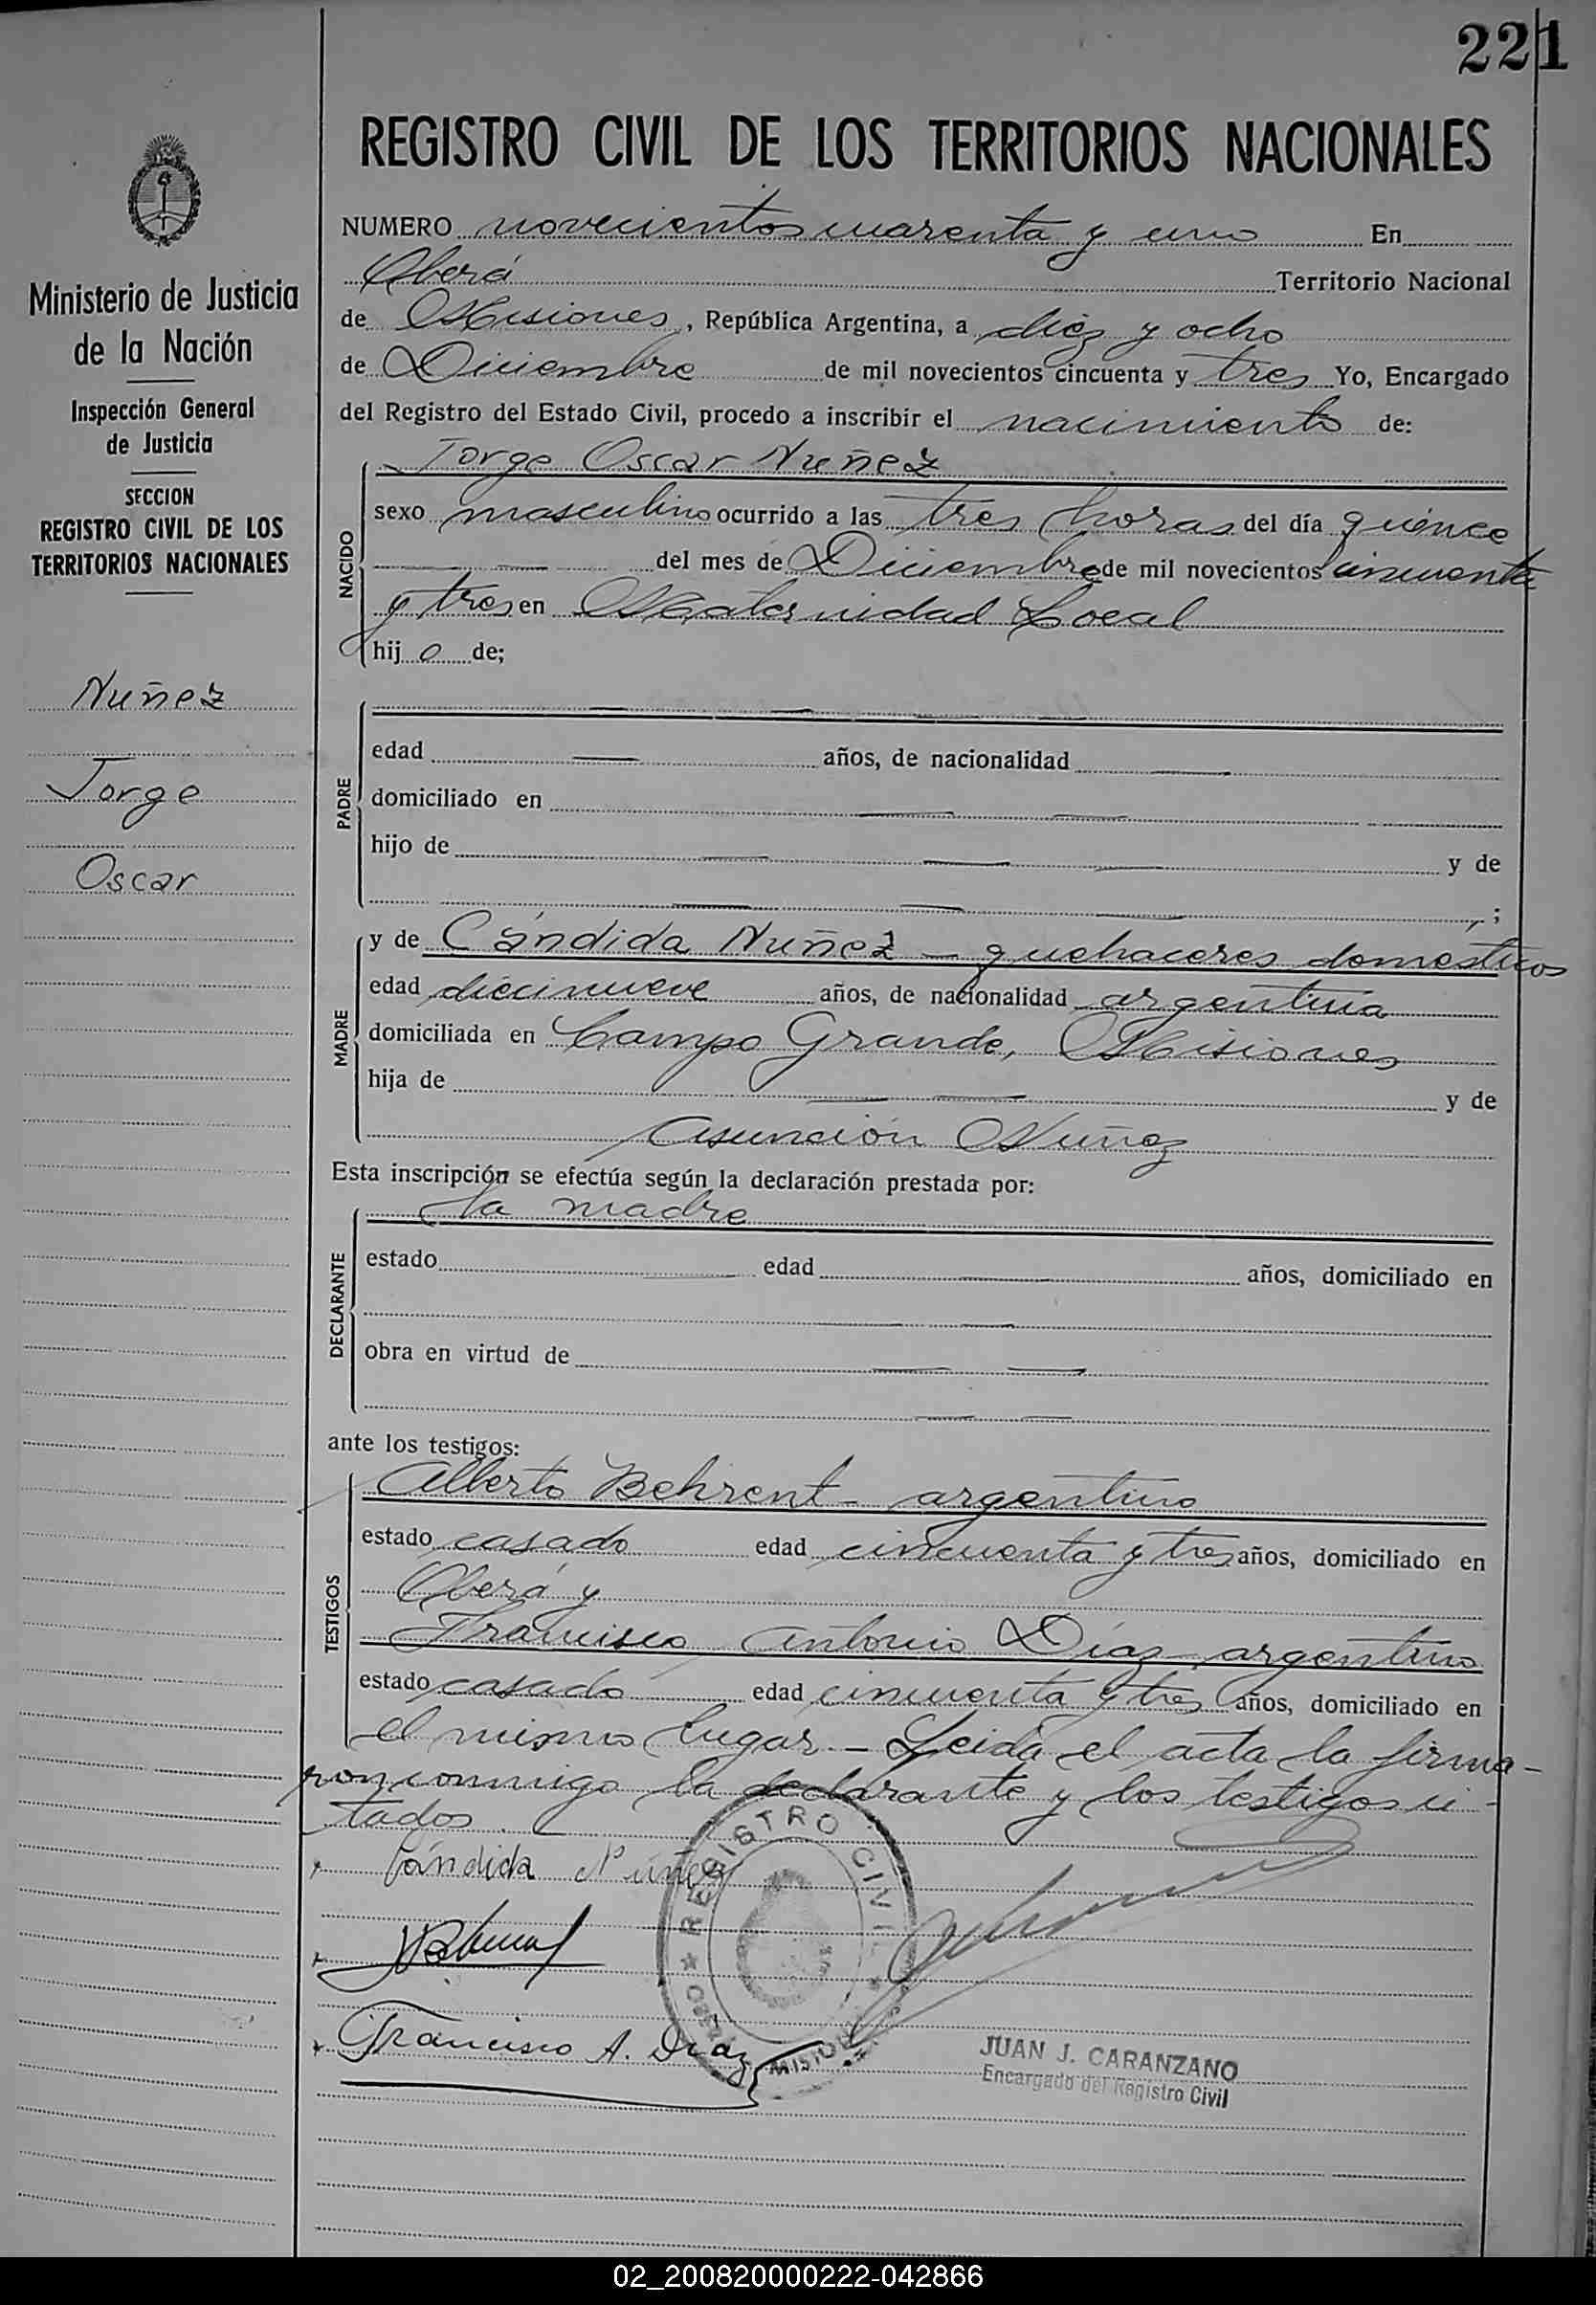 221
REGISTRO CIVIL DE LOS TERRITORIOS NACIONALES
Ministerio de Justicia
de la Nación
Inspección General
de Justicia
SECCION
REGISTRO CIVIL DE LOS
TERRITORIOS NACIONALES
Nuñez
Jorge
Oscar
NUMERO novecientos cuarenta y uno En
Oberá Territorio Nacional
de Misiones, República Argentina, a diez y ocho
de Diciembre de mil novecientos cincuenta y tres Yo, Encargado
del Registro del Estado Civil, procedo a inscribir el nacimiento de:
NACIDO
Jorge Oscar Nuñez
sexo masculino ocurrido a las tres horas del día quince
del mes de Diciembre de mil novecientos cincuenta
y tres en Maternidad Local
hijo de;
PADRE
edad años, de nacionalidad
domiciliado en
hijo de y de
;
MADRE
y de Cándida Nuñez - quehaceres domesticos
edad diecinueve años, de nacionalidad argentina
domiciliada en Campo Grande, Misiones
hija de y de
Asunción Nuñez
Esta inscripción se efectúa según la declaración prestada por:
DECLARANTE
la madre
estado edad años, domiciliado en
obra en virtud de
ante los testigos:
TESTIGOS
Alberto Behrent - argentino
estado casado edad cincuenta y tres años, domiciliado en
Oberá y
Francisco Antonio Díaz - argentino
estado casado edad cincuenta y tres años, domiciliado en
el mismo lugar. - Leida el acta la firma-
ron conmigo la declarante y los testigos ci-
tados.
Cándida Núñez
Francisco A. Diaz
REGISTRO CIVIL
OBERÁ MISIONES
JUAN J. CARANZANO
Encargado del Registro Civil
02_200820000222-042866